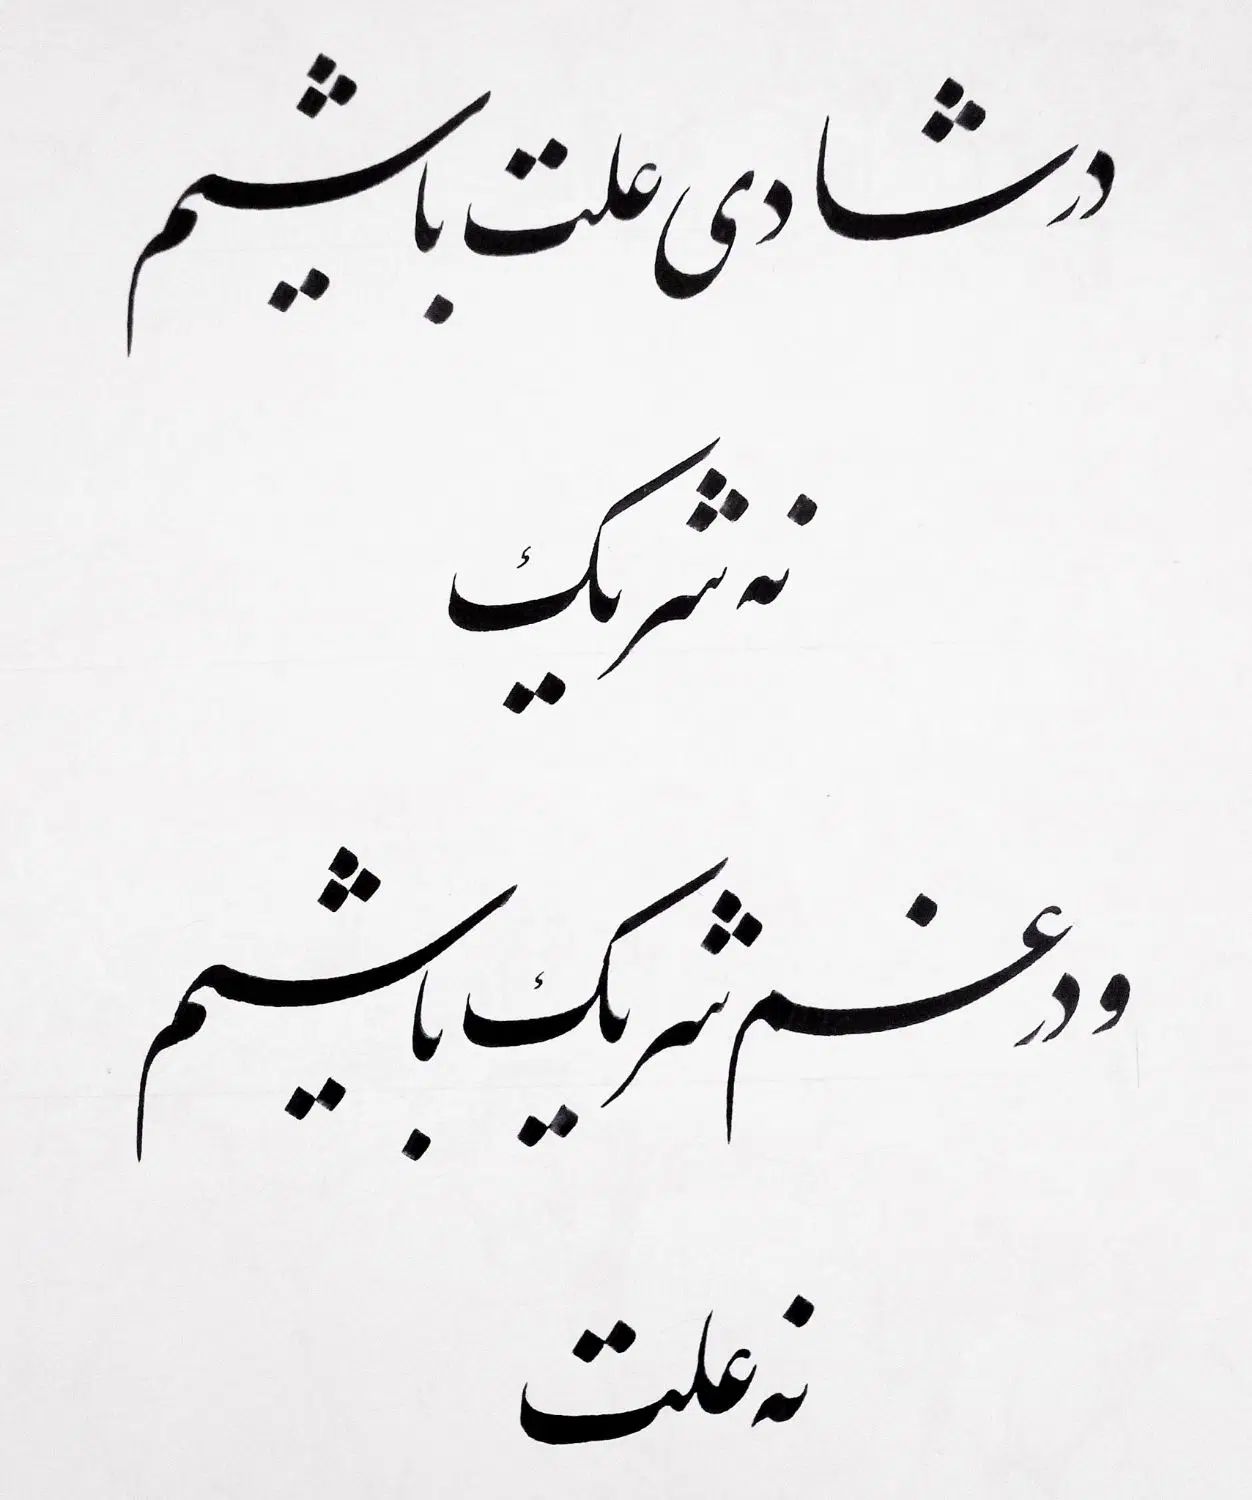 در شادی علت باشیم
نه شریک
و در غم شریک باشیم
نه علت